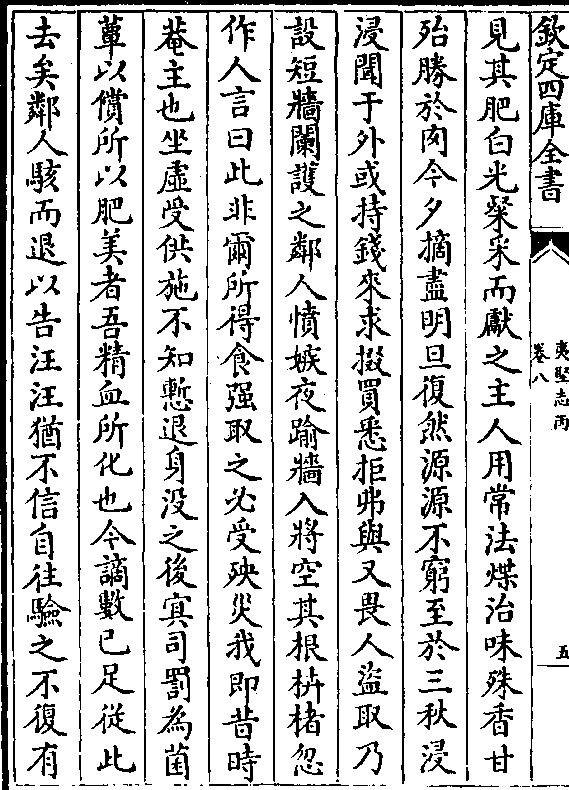 欽定四庫全書
夷堅志丙
卷八
五
見其肥白光粲采而獻之主人用常法煤治味殊香甘
殆勝於肉今夕摘盡明旦復然源源不窮至於三秋浸
浸聞于外或持錢來求掇買悉拒弗與又畏人盜取乃
設短牆闌護之鄰人憤嫉夜踰牆入將空其根枿楮忽
作人言曰此非爾所得食强取之必受殃災我即昔時
菴主也坐虛受供施不知慙退身没之後冥司罰為菌
蕈以償所以肥美者吾精血所化也今謫數已足從此
去矣鄰人駭而退以告汪汪猶不信自往驗之不復有